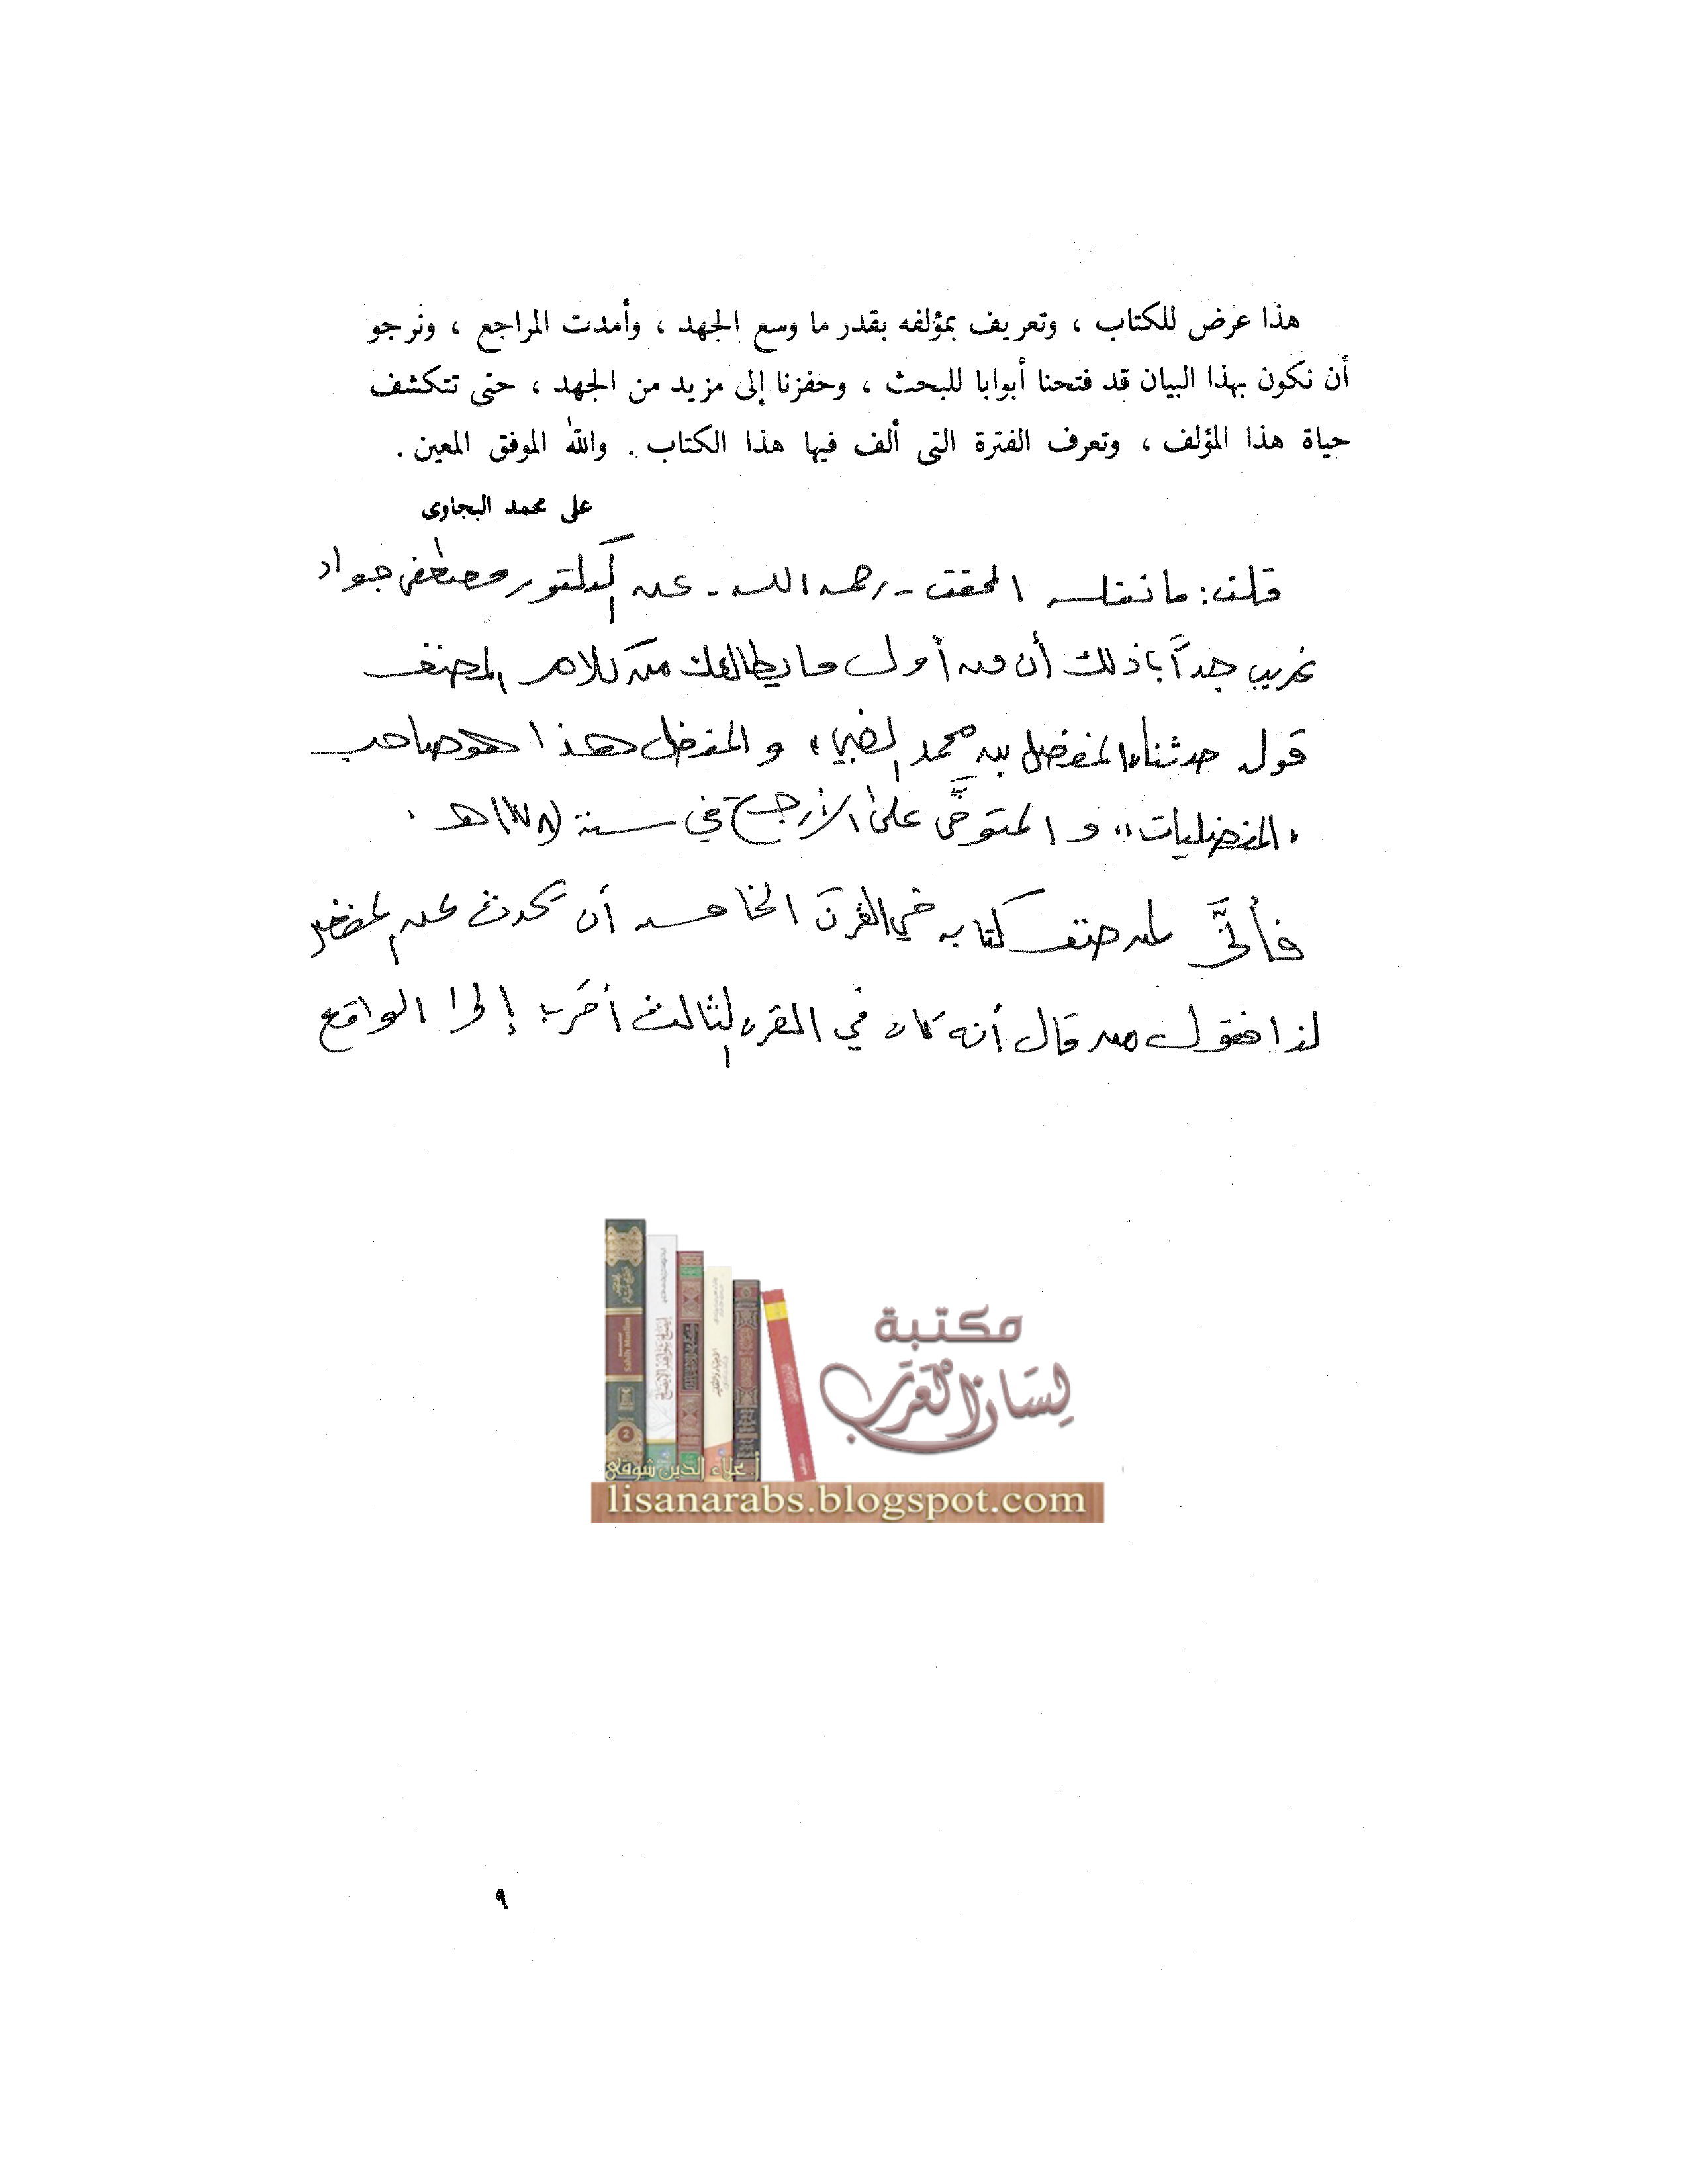 هذا عرض للكتاب ، وتعريف بمؤلفه بقدر ما وسع الجهد ، وأمدت المراجع ، ونرجو
أن نكون بهذا البيان قد فتحنا أبوابا للبحث ، وحفزنا إلى مزيد من الجهد ، حتى تتكشف
حياة هذا المؤلف ، وتعرف الفترة التى ألف فيها هذا الكتاب . والله الموفق المعين .
على محمد البجاوى
قلت: ما نقله المحقق - رحمه الله - عن الدكتور مصطفى جواد
غريب جداً ذلك أن من أول ما يطالعك من كلام المصنف
قول حدثنا المفضل بن محمد الضبي» و المفضل هذا هو صاحب
«المفضليات» و المتوفَّى على الأرجح في سنة (١٧٨)هـ .
فأنَّى لمن صنف كتابه في القرن الخامس أن يحدث عن المفضل
لذا فقول من قال أنه كان في القرن الثالث أقرب إلى الواقع
مكتبة
لسان العرب
أ علاء الدين شوقى
lisanarabs.blogspot.com
٩